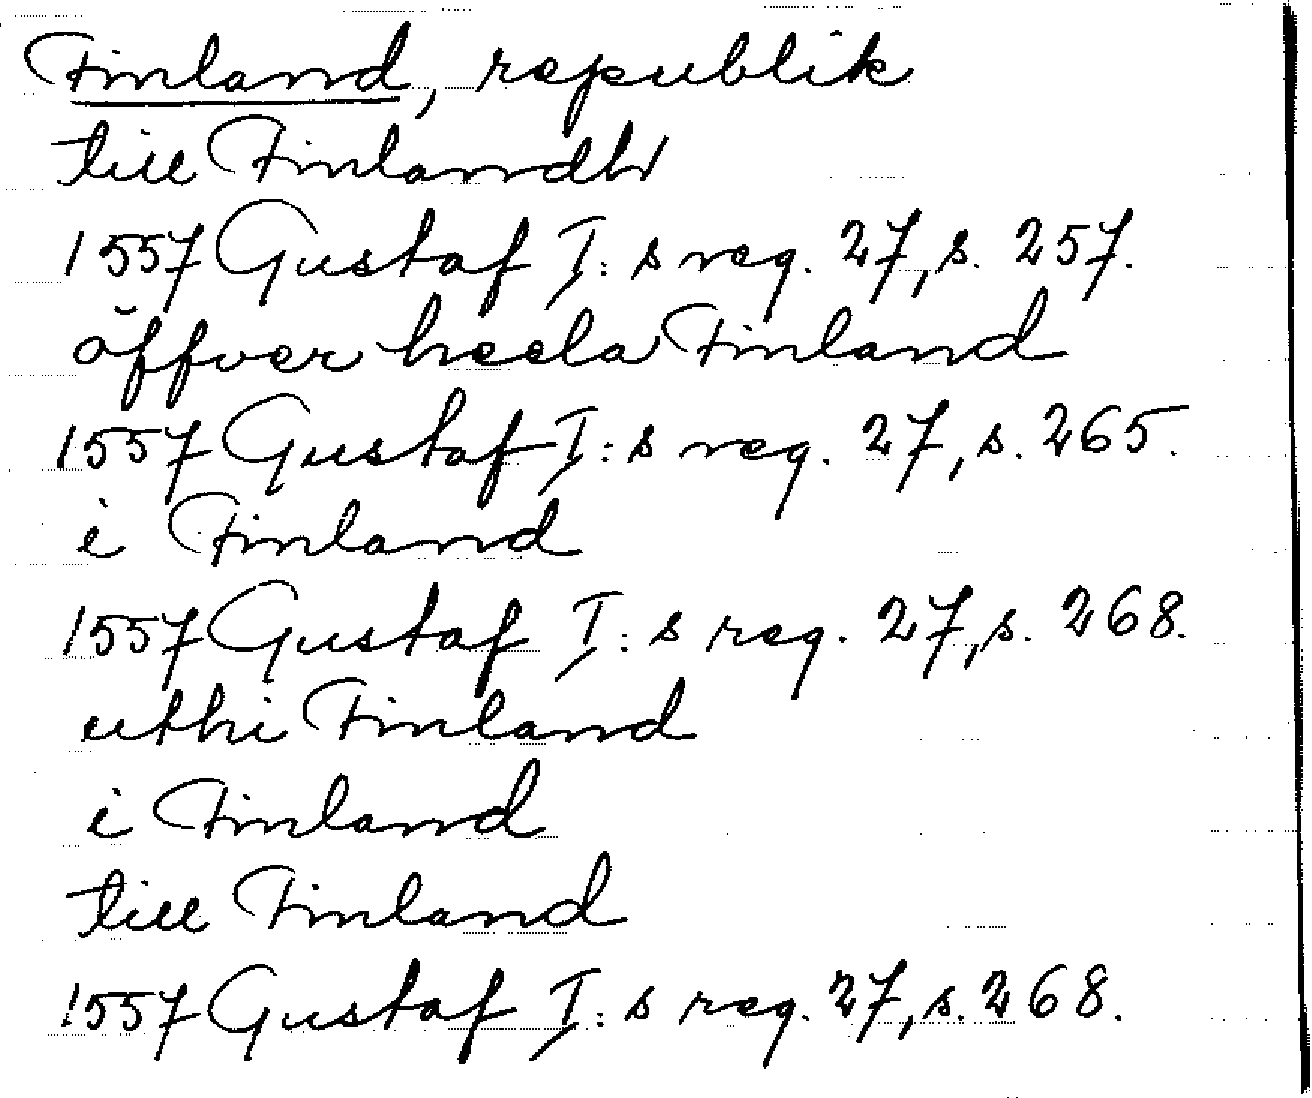 Finland, republik
till Finlandh
1557 Gustaf I:s reg. 27, s. 257.
öffver heela Finland
1557 Gustaf I:s reg. 27, s. 265.
i Finland
1557 Gustaf I:s reg. 27, s. 268.
uthi Finland
i Finland
till Finland
1557 Gustaf I:s reg. 27, s. 268.